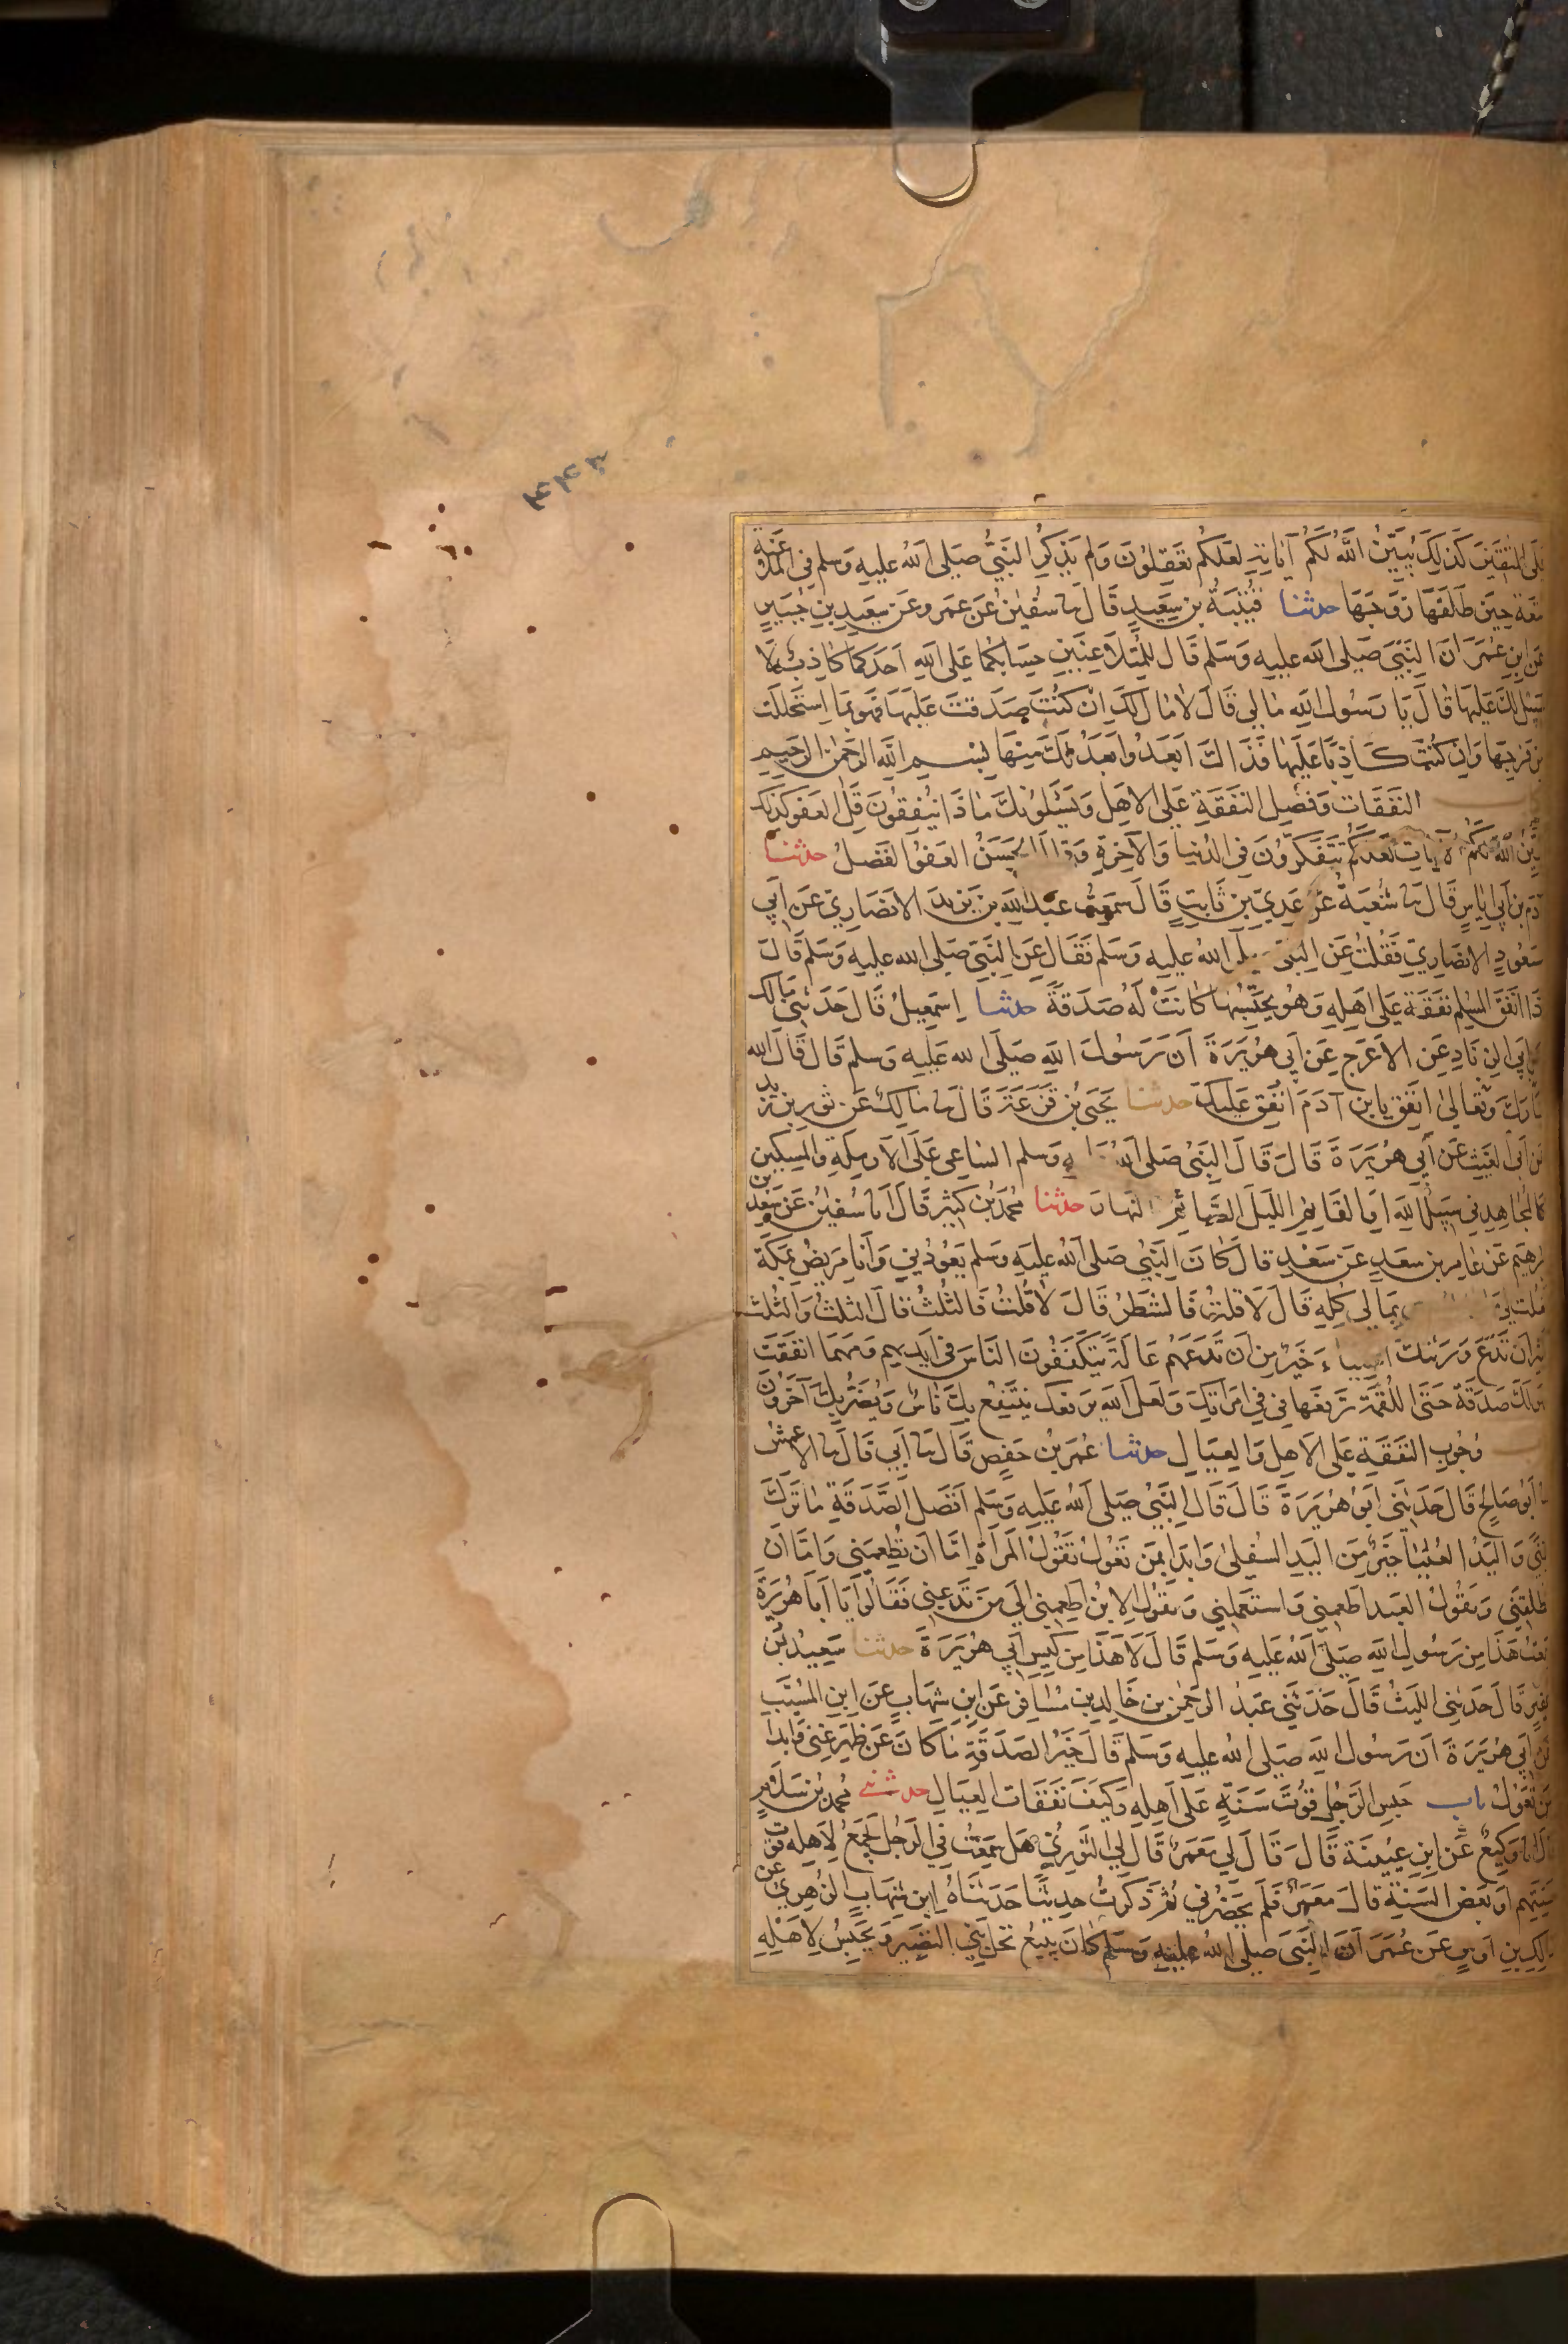 ٤٤٣
المتقين كذلك يبين الله لكم آياته لعلكم تعقلون ولم يذكر النبي صلى الله عليه وسلم في الملاعنة
متعة حين طلقها زوجها حدثنا قتيبة بن سعيد قال نا سفين عن عمرو عن سعيد بن جبير
عن ابن عمر ان النبي صلى الله عليه وسلم قال للمتلاعنين حسابكما على الله احدكما كاذب لا
سبيل لك عليها قال يا رسول الله مالي قال لا مال لك ان كنت صدقت عليها فهو بما استحللت
من فرجها وان كنت كاذبا عليها فذاك ابعد وابعد لك منها بسم الله الرحمن الرحيم
النفقات وفضل النفقة على الاهل ويسئلونك ماذا ينفقون قل العفو كذلك
يبين الله لكم الآيات لعلكم تتفكرون في الدنيا والآخرة وقال الحسن العفو الفضل حدثنا
آدم بن ابي اياس قال نا شعبة عن عدي بن ثابت قال سمعت عبد الله بن يزيد الانصاري عن ابي
مسعود الانصاري فقلت عن النبي صلى الله عليه وسلم فقال عن النبي صلى الله عليه وسلم قال
اذا انفق المسلم نفقة على اهله وهو يحتسبها كانت له صدقة حدثنا اسمعيل قال حدثني مالك
عن ابي الزناد عن الاعرج عن ابي هريرة ان رسول الله صلى الله عليه وسلم قال قال الله
تبارك وتعالى انفق يا بن آدم انفق عليك حدثنا يحيى بن قزعة قال نا مالك عن ثور بن زيد
عن ابي الغيث عن ابي هريرة قال قال النبي صلى الله وسلم الساعي على الارملة والمسكين
كالمجاهد في سبيل الله او القايم الليل الصائم النهار حدثنا محمد بن كثير قال انا سفين عن سعد بن
ابرهيم عن عامر بن سعد عن سعد قال كان النبي صلى الله عليه وسلم يعودني وانا مريض بمكة
فقلت لي بمالي كله قال لا قلت فالشطر قال لا قلت فالثلث قال الثلث والثلث
كثير ان تدع ورثتك اغنياء خير من ان تدعهم عالة يتكففون الناس في ايديهم ومهما انفقت
فهو لك صدقة حتى اللقمة ترفعها في في امراتك ولعل الله يرفعك ينتفع بك ناس ويضر بك آخرون
وجوب النفقة على الاهل والعيال حدثنا عمر بن حفص قال نا ابي قال نا الاعمش
نا ابو صالح قال حدثني ابو هريرة قال قال النبي صلى الله عليه وسلم افضل الصدقة ما ترك
غنى واليد العليا خير من اليد السفلى وابدا بمن تعول تقول المراة اما ان تطعمني واما ان
تطلقني ويقول العبد اطعمني واستعملني ويقول الابن اطعمني الى من تدعني فقالوا يا ابا هريرة
سمعت هذا من رسول الله صلى الله عليه وسلم قال لا هذا من كيس ابي هريرة حدثنا سعيد بن
عفير قال حدثني الليث قال حدثني عبد الرحمن بن خالد بن مسافر عن ابن شهاب عن ابن المسيب
عن ابي هريرة ان رسول الله صلى الله عليه وسلم قال خير الصدقة ما كان عن ظهر غنى وابدا
بمن تعول باب حبس الرجل قوت سنة على اهله وكيف نفقات العيال حدثني محمد بن سلام
قال انا وكيع عن ابن عيينة قال قال لي معمر قال لي الثوري هل سمعت في الرجل يجمع لاهله قوت
سنتهم او بعض السنة قال معمر فلم يحضرني ثم ذكرت حديثا حدثناه ابن شهاب الزهري عن
مالك بن اوس عن عمر ان النبي صلى الله عليه وسلم كان يبيع نخل بني النضير ويحبس لاهله